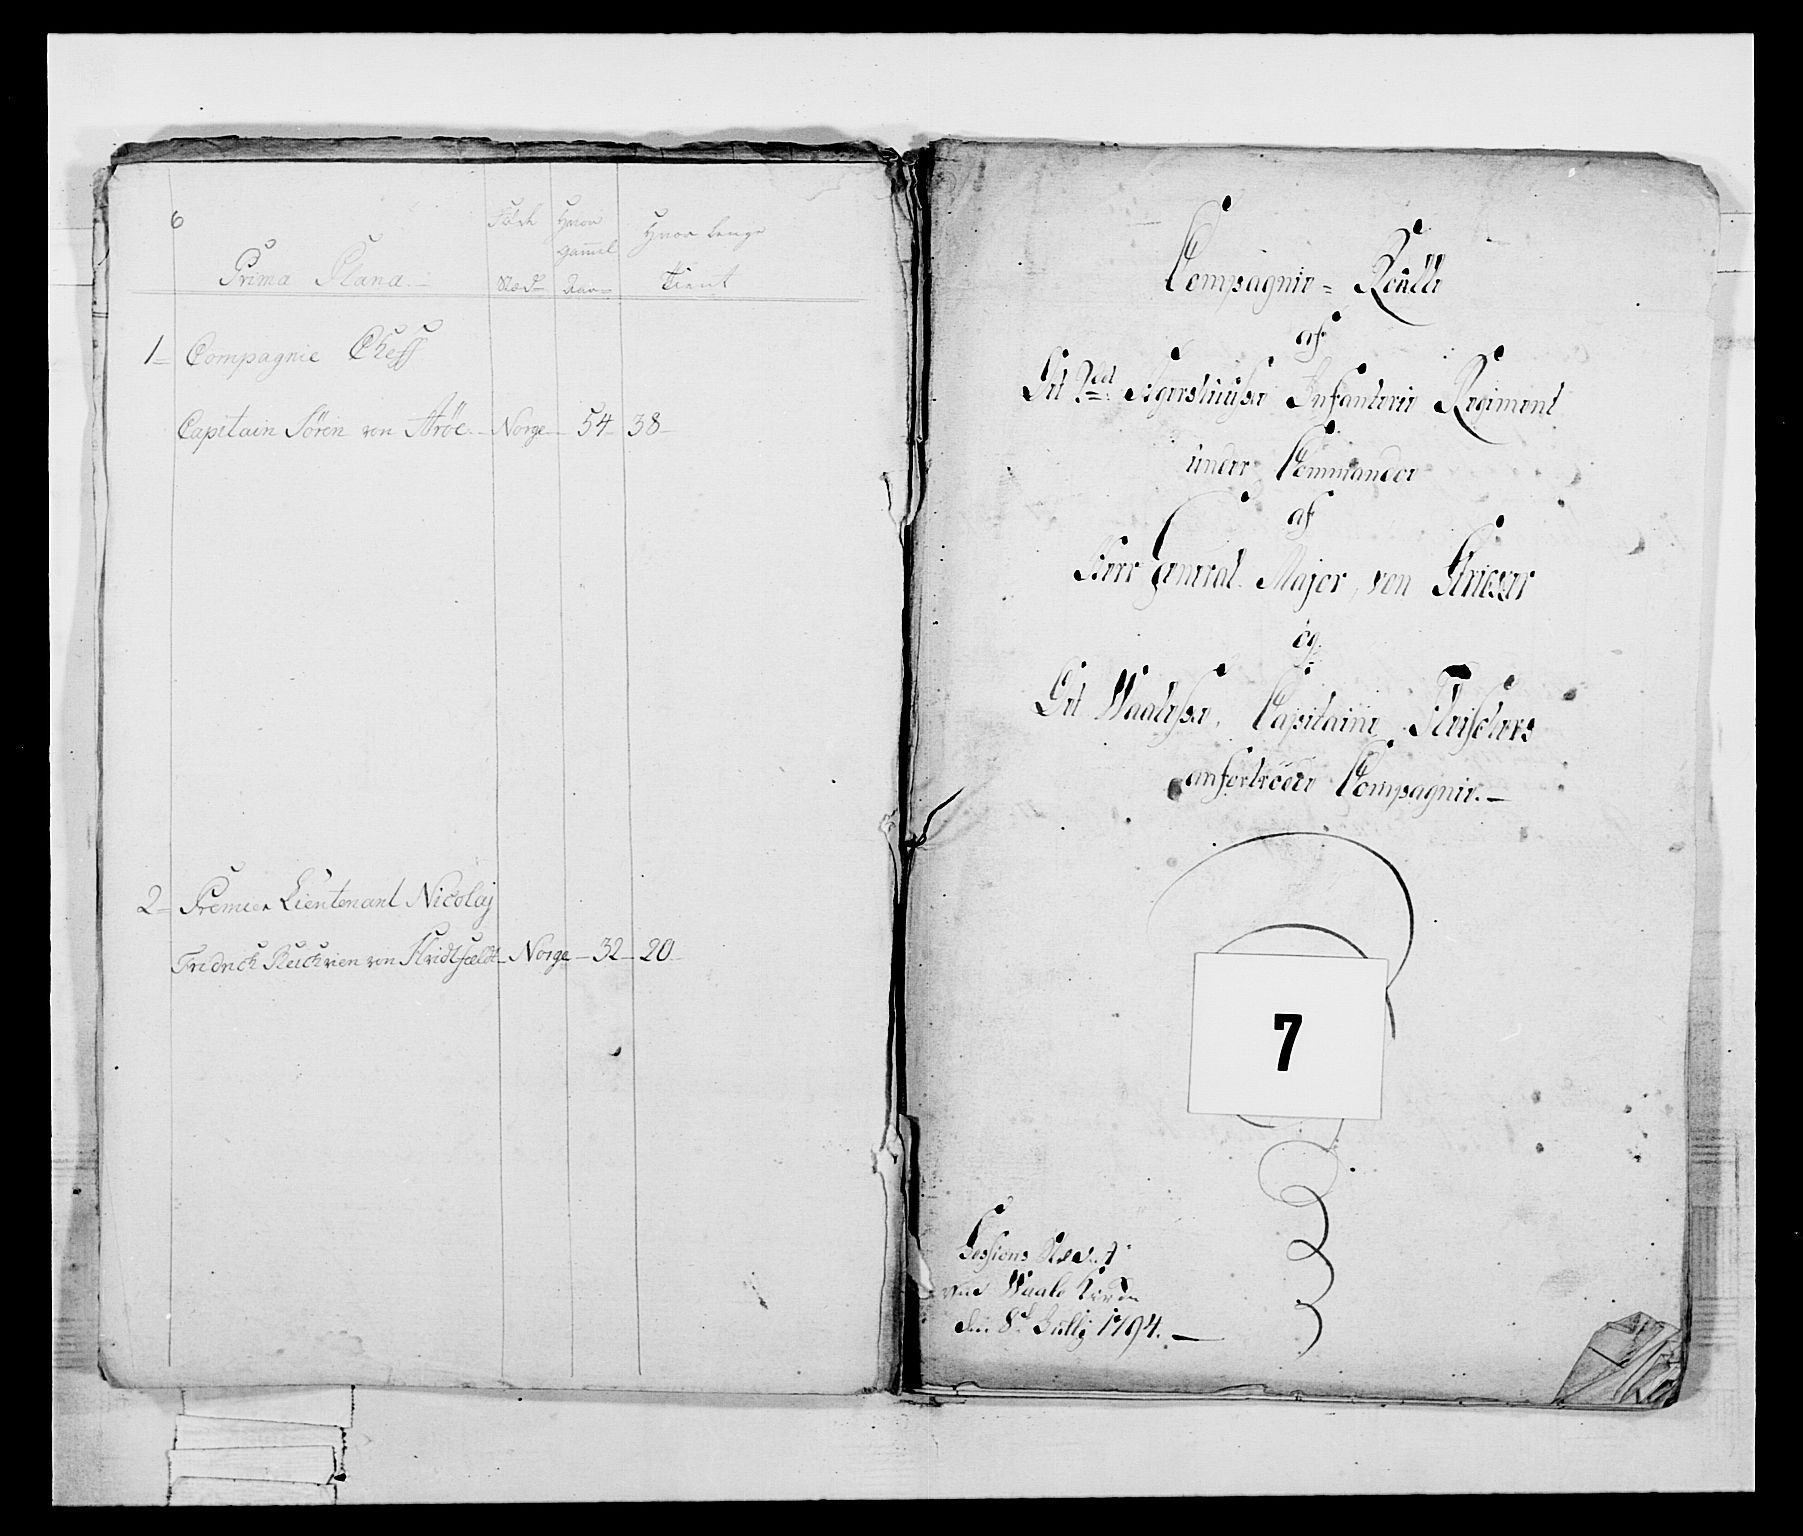 6
Føde Hvor Hvor længe
gamel
Prima Plana. Stæd Aar Tient
1 Compagnie Cheff
Capitain Sören von Aröe. Norge 54 38
2 Premier Lieutenant Nicolaj
Fredrich von Norge 32 20
Compagnie=Rulle
af
Det 2det Agershuuske Infanterie Regiment
under Commando
af
Herr General Major von
og
Det Waalske, Capitaine Fleischers
anfortroede Compagnie.
Sessions Stædet
ved Waale Kirke
den 8de Jullj 1794.
7